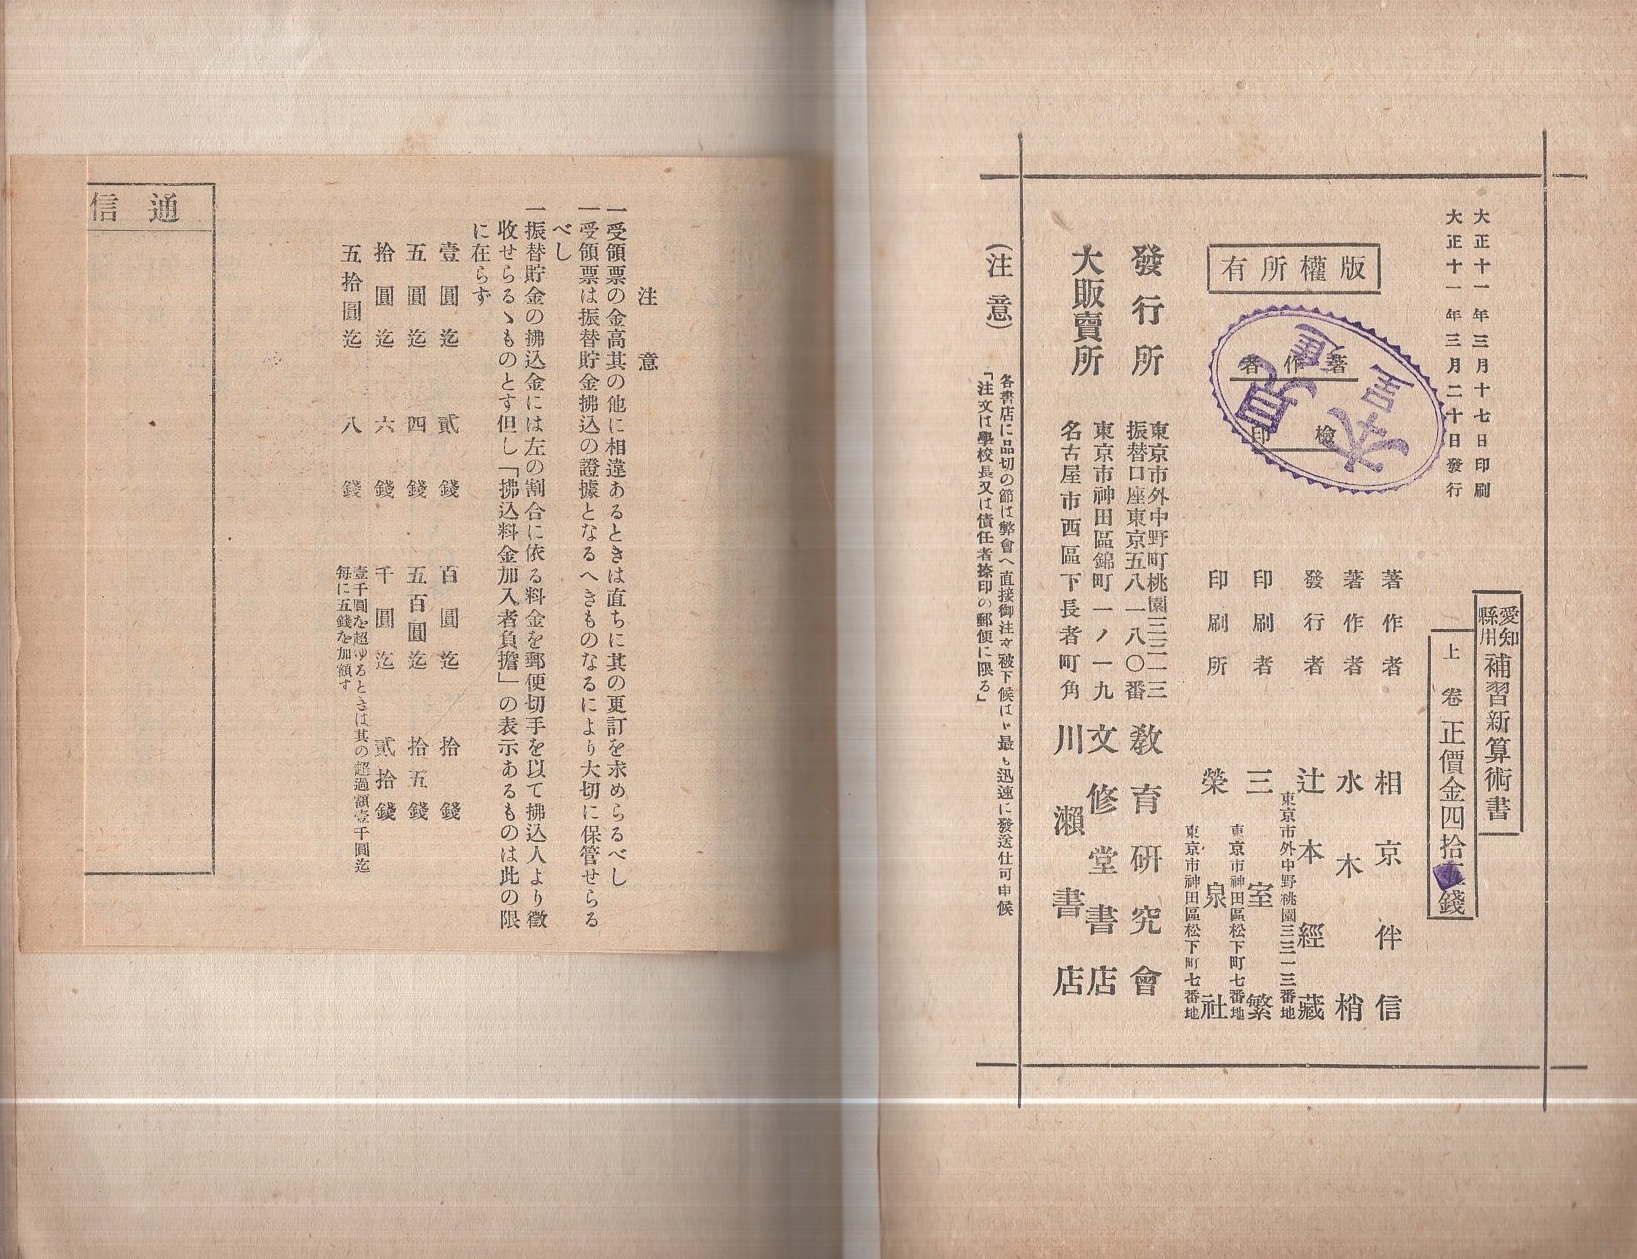 大正十一年三月十七日印刷
大正十一年三月二十日發行
愛知縣用 補習新算術書
上卷 正價金四拾五錢
版權所有
著作者
檢印
著作者 相京伴信
著作者 水木梢
發行者 辻本經藏
東京市外中野桃園三三一三番地
印刷者 三室繁
東京市神田區松下町七番地
印刷所 榮泉社
東京市神田區松下町七番地
發行所
東京市外中野町桃園三三一三
振替口座東京五八一八〇番
敎育硏究會
大販賣所
東京市神田區錦町一ノ一九 文修堂書店
名古屋市西區下長者町角 川瀨書店
(注意)
各書店に品切の節は弊會へ直接御注文被下候はゞ最も迅速に發送仕可申候
「注文は學校長又は責任者捺印の郵便に限る」
注意
一受領票の金高其の他に相違あるときは直ちに其の更訂を求めらるべし
一受領票は振替貯金拂込の證據となるへきものなるにより大切に保管せらる
べし
一振替貯金の拂込金には左の割合に依る料金を郵便切手を以て拂込人より徵
收せらるゝものとす但し「拂込料金加入者負擔」の表示あるものは此の限
に在らず
壹圓迄 貳錢 百圓迄 拾錢
五圓迄 四錢 五百圓迄 拾五錢
拾圓迄 六錢 千圓迄 貳拾錢
五拾圓迄 八錢 壹千圓を超ゆるときは其の超過額壹千圓迄
每に五錢を加額す
通信